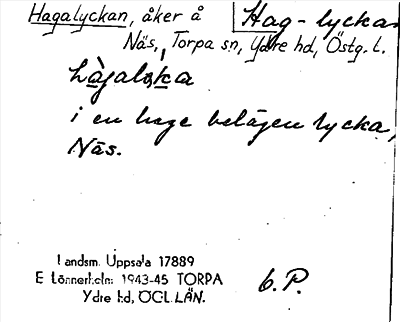 Hagalyckan, åker å Hag-lyckan
Näs, Torpa sn, Ydre hd, Östg. l.
i en hage belägen lycka,
Näs.
Landsm. Uppsala 17889
E Lönnerholm 1943-45 TORPA
Ydre hd, ÖGL. LÄN.
6. P.